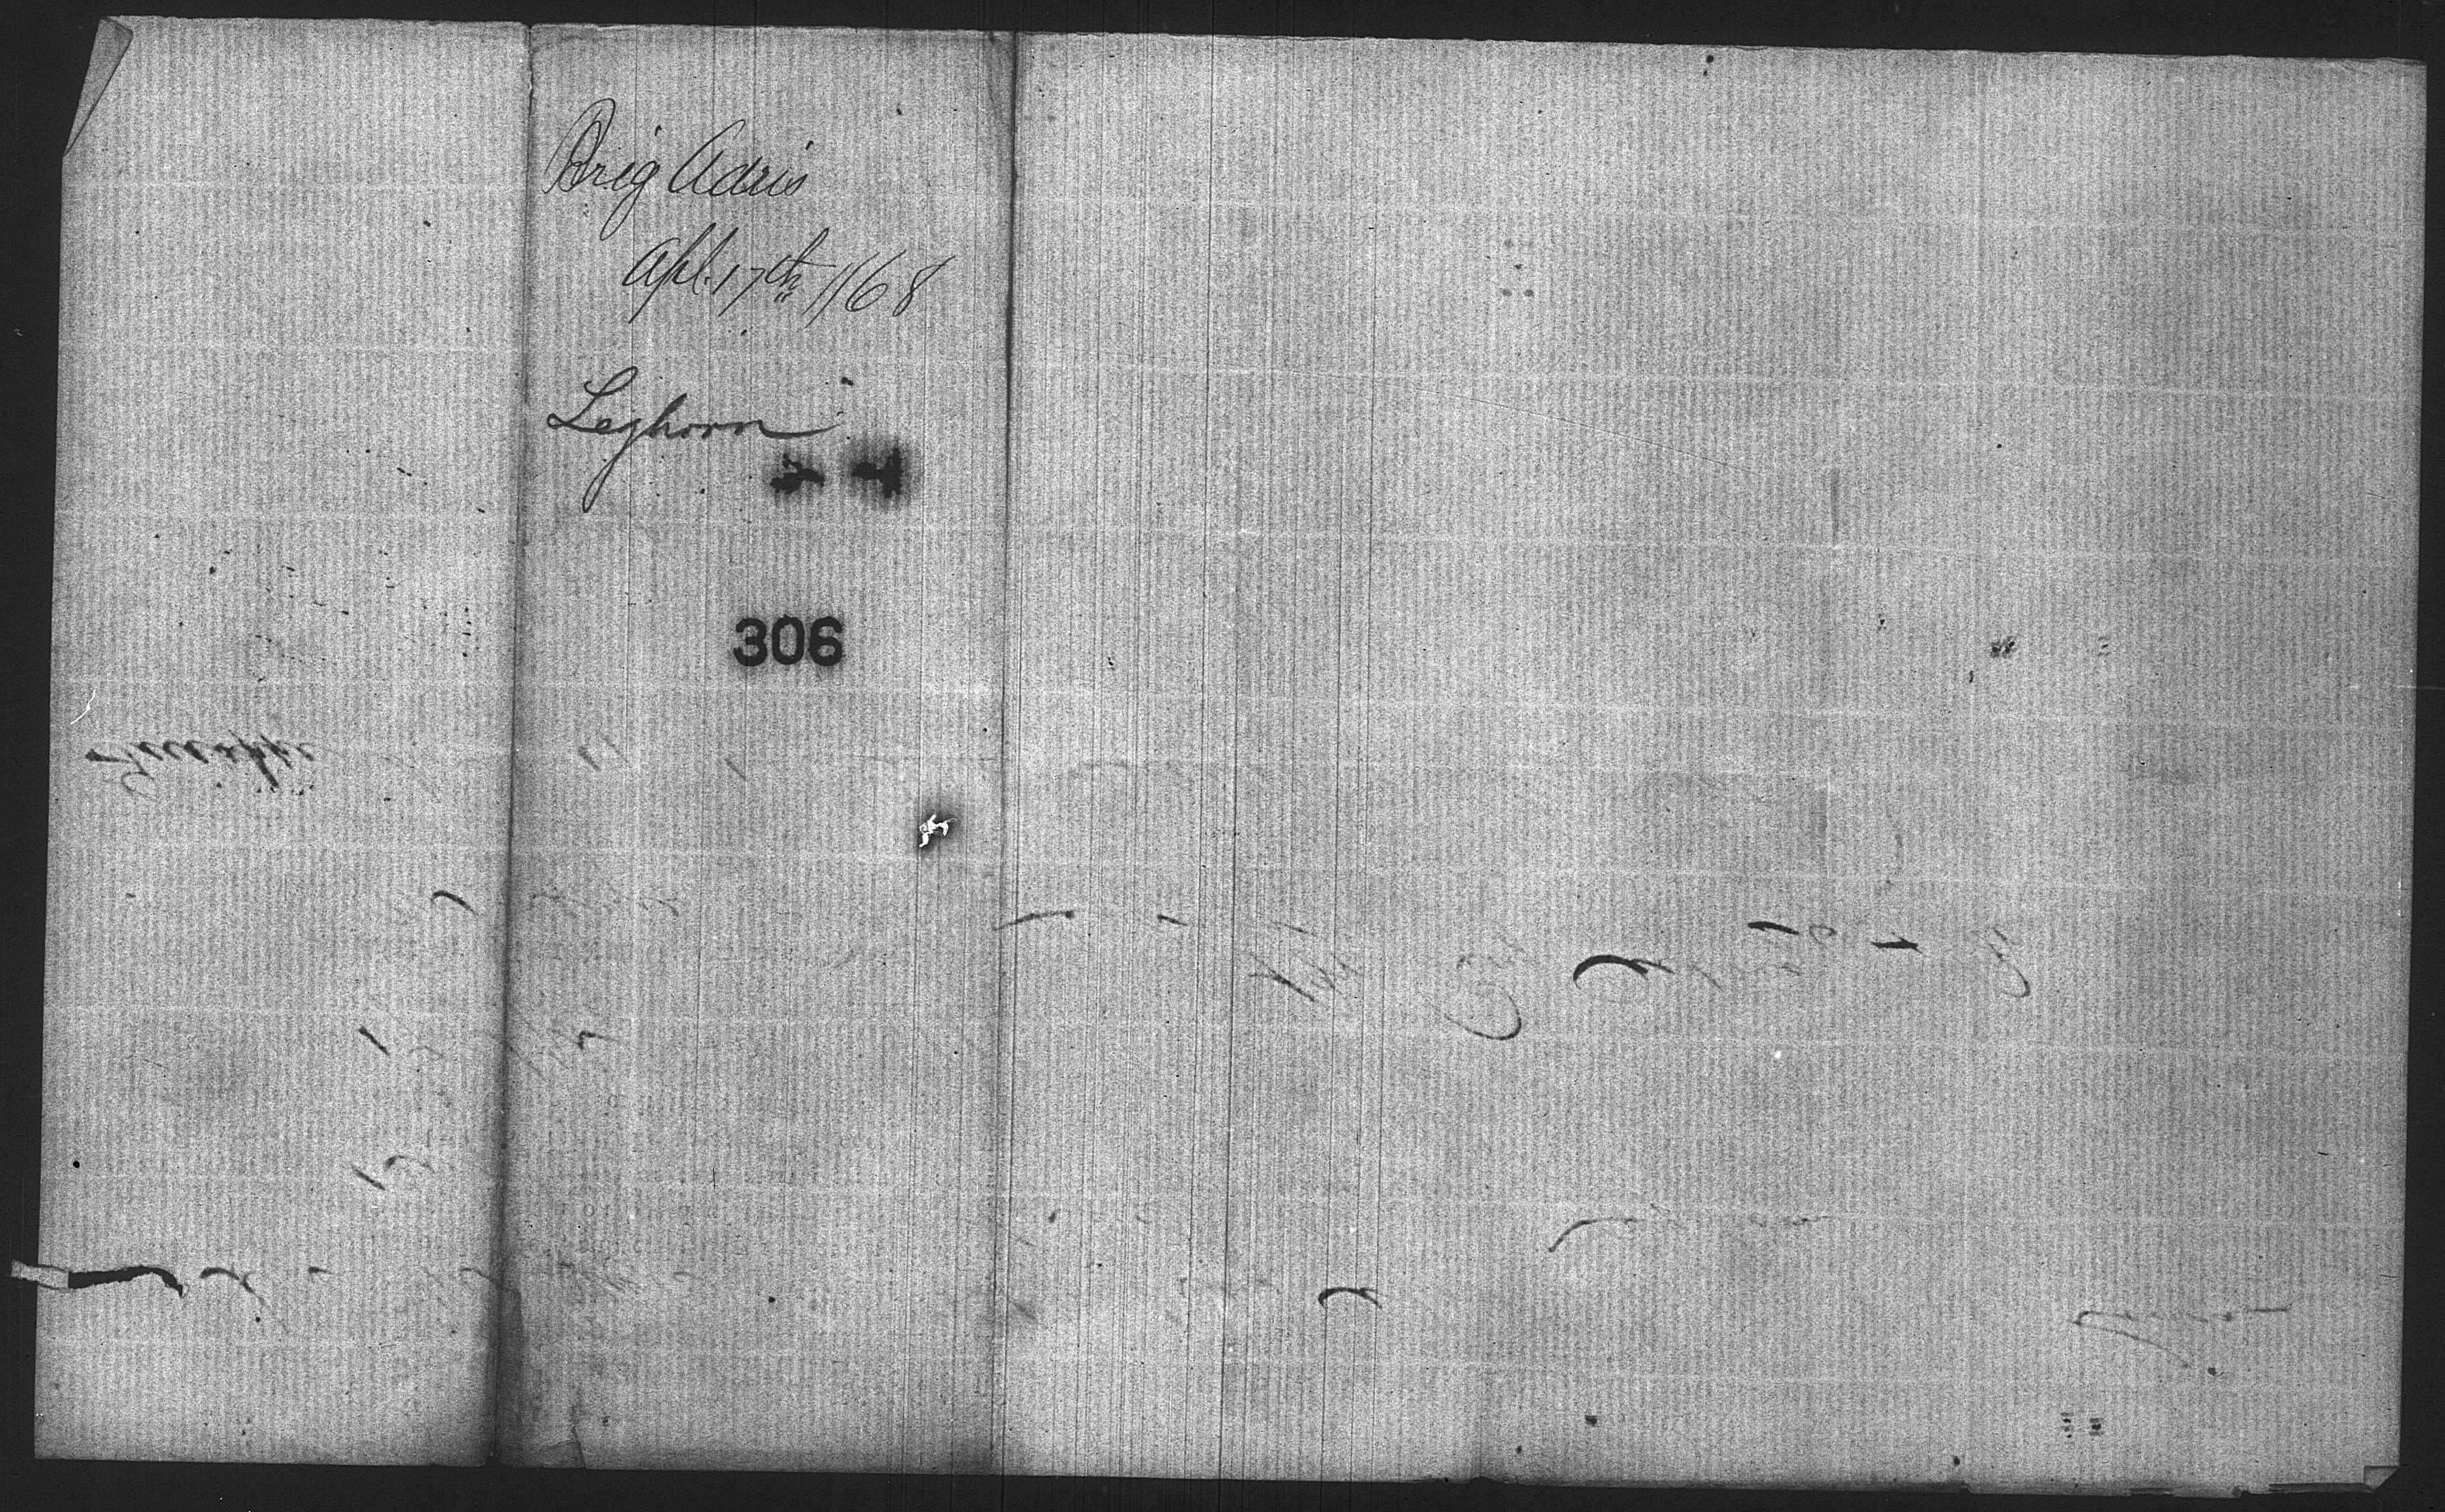 Brig Adris
Apl. 17th 1168
Leghorn
306